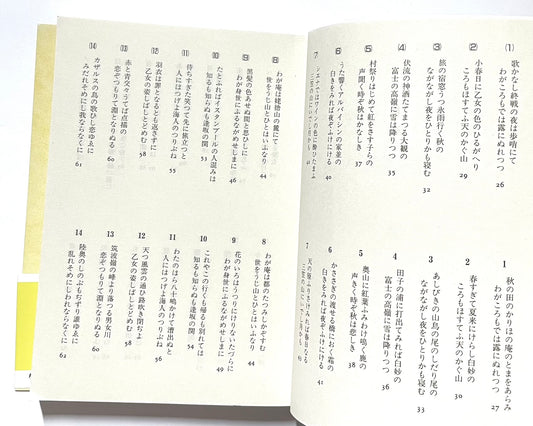 (1)
歌かなし戦の夜は歩哨にて
わがころもでは露にぬれつつ
26
(2)
小春日に乙女の色のひるがへり
ころもほすてふ天のかぐ山
29
(3)
旅の宿窓うつ氷雨行く秋の
ながながし夜をひとりかも寝む
32
(4)
伏流の神酒たてまつる大観の
富士の高嶺に雪は降りつつ
35
(5)
村祭りはじめて紅をさす子らの
声聞く時ぞ秋はかなしき
37
(6)
うた響くアルバイシンの家並の
白きをみれば夜ぞふけにける
40
7
シエナではワインの色に酔ひたまふ
三笠の山にいでし月かも
1
秋の田のかりほの庵のとまをあらみ
わがころもでは露にぬれつつ
27
2
春すぎて夏来にけらし白妙の
ころもほすてふ天のかぐ山
30
3
あしびきの山鳥の尾のしだり尾の
ながながし夜をひとりかも寝む
33
4
田子の浦に打出てみれば白妙の
富士の高嶺に雪は降りつつ
35
5
奥山に紅葉ふみわけ鳴く鹿の
声きく時ぞ秋は悲しき
38
6
かささぎの渡せる橋におく霜の
白きをみれば夜ぞふけにける
41
7
天の原ふりさけみれば春日なる
三笠の山にいでし月かも
(8)
わが庵は姥捨山の麓にて
世をうじ山とひとはいふなり
44
(9)
黒髪の色あせぬ間と思ひしに
わが身世にふるながめせしまに
46
(10)
たとふればイスタンブールの人混みは
知るも知らぬも逢坂の関
51
(11)
待ちすぎた笑つて先に旅立つと
人にはつげよ海人のつりぶね
55
(12)
羽衣は罪となるとも返さずに
乙女の姿しばしとどめむ
(13)
赤と青交々うてば点描の
恋ぞつもりて淵となりぬる
(14)
カザルスの鳥の歌ひし恋ゆゑに
みだれそめにし我ならなくに
60
8
わが庵は都のたつみしかぞすむ
世をうぢ山と人はいふなり
44
9
花のいろはうつりにけりないたづらに
わが身世にふるながめせしまに
49
10
これやこの行くも帰るも別れては
知るも知らぬも逢坂の関
54
11
わたのはら八十嶋かけて漕出ぬと
人にはつげよ海人のつりぶね
12
天つ風雲の通ひ路吹き閉ぢよ
乙女の姿しばしとどめむ
13
筑波嶺の峰より落つる男女川
恋ぞつもりて淵となりぬる
14
陸奥のしのぶもぢずり誰ゆゑに
乱れそめにしわれならなくに
61